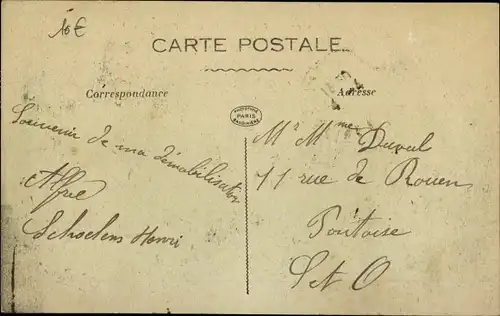 10 €
CARTE POSTALE
Correspondance
Adresse
PARIS
Souvenir de ma démobilisation
Schoelens Henri
Mr Mme Duval
11 rue de Rouen
Pontoise
S et O